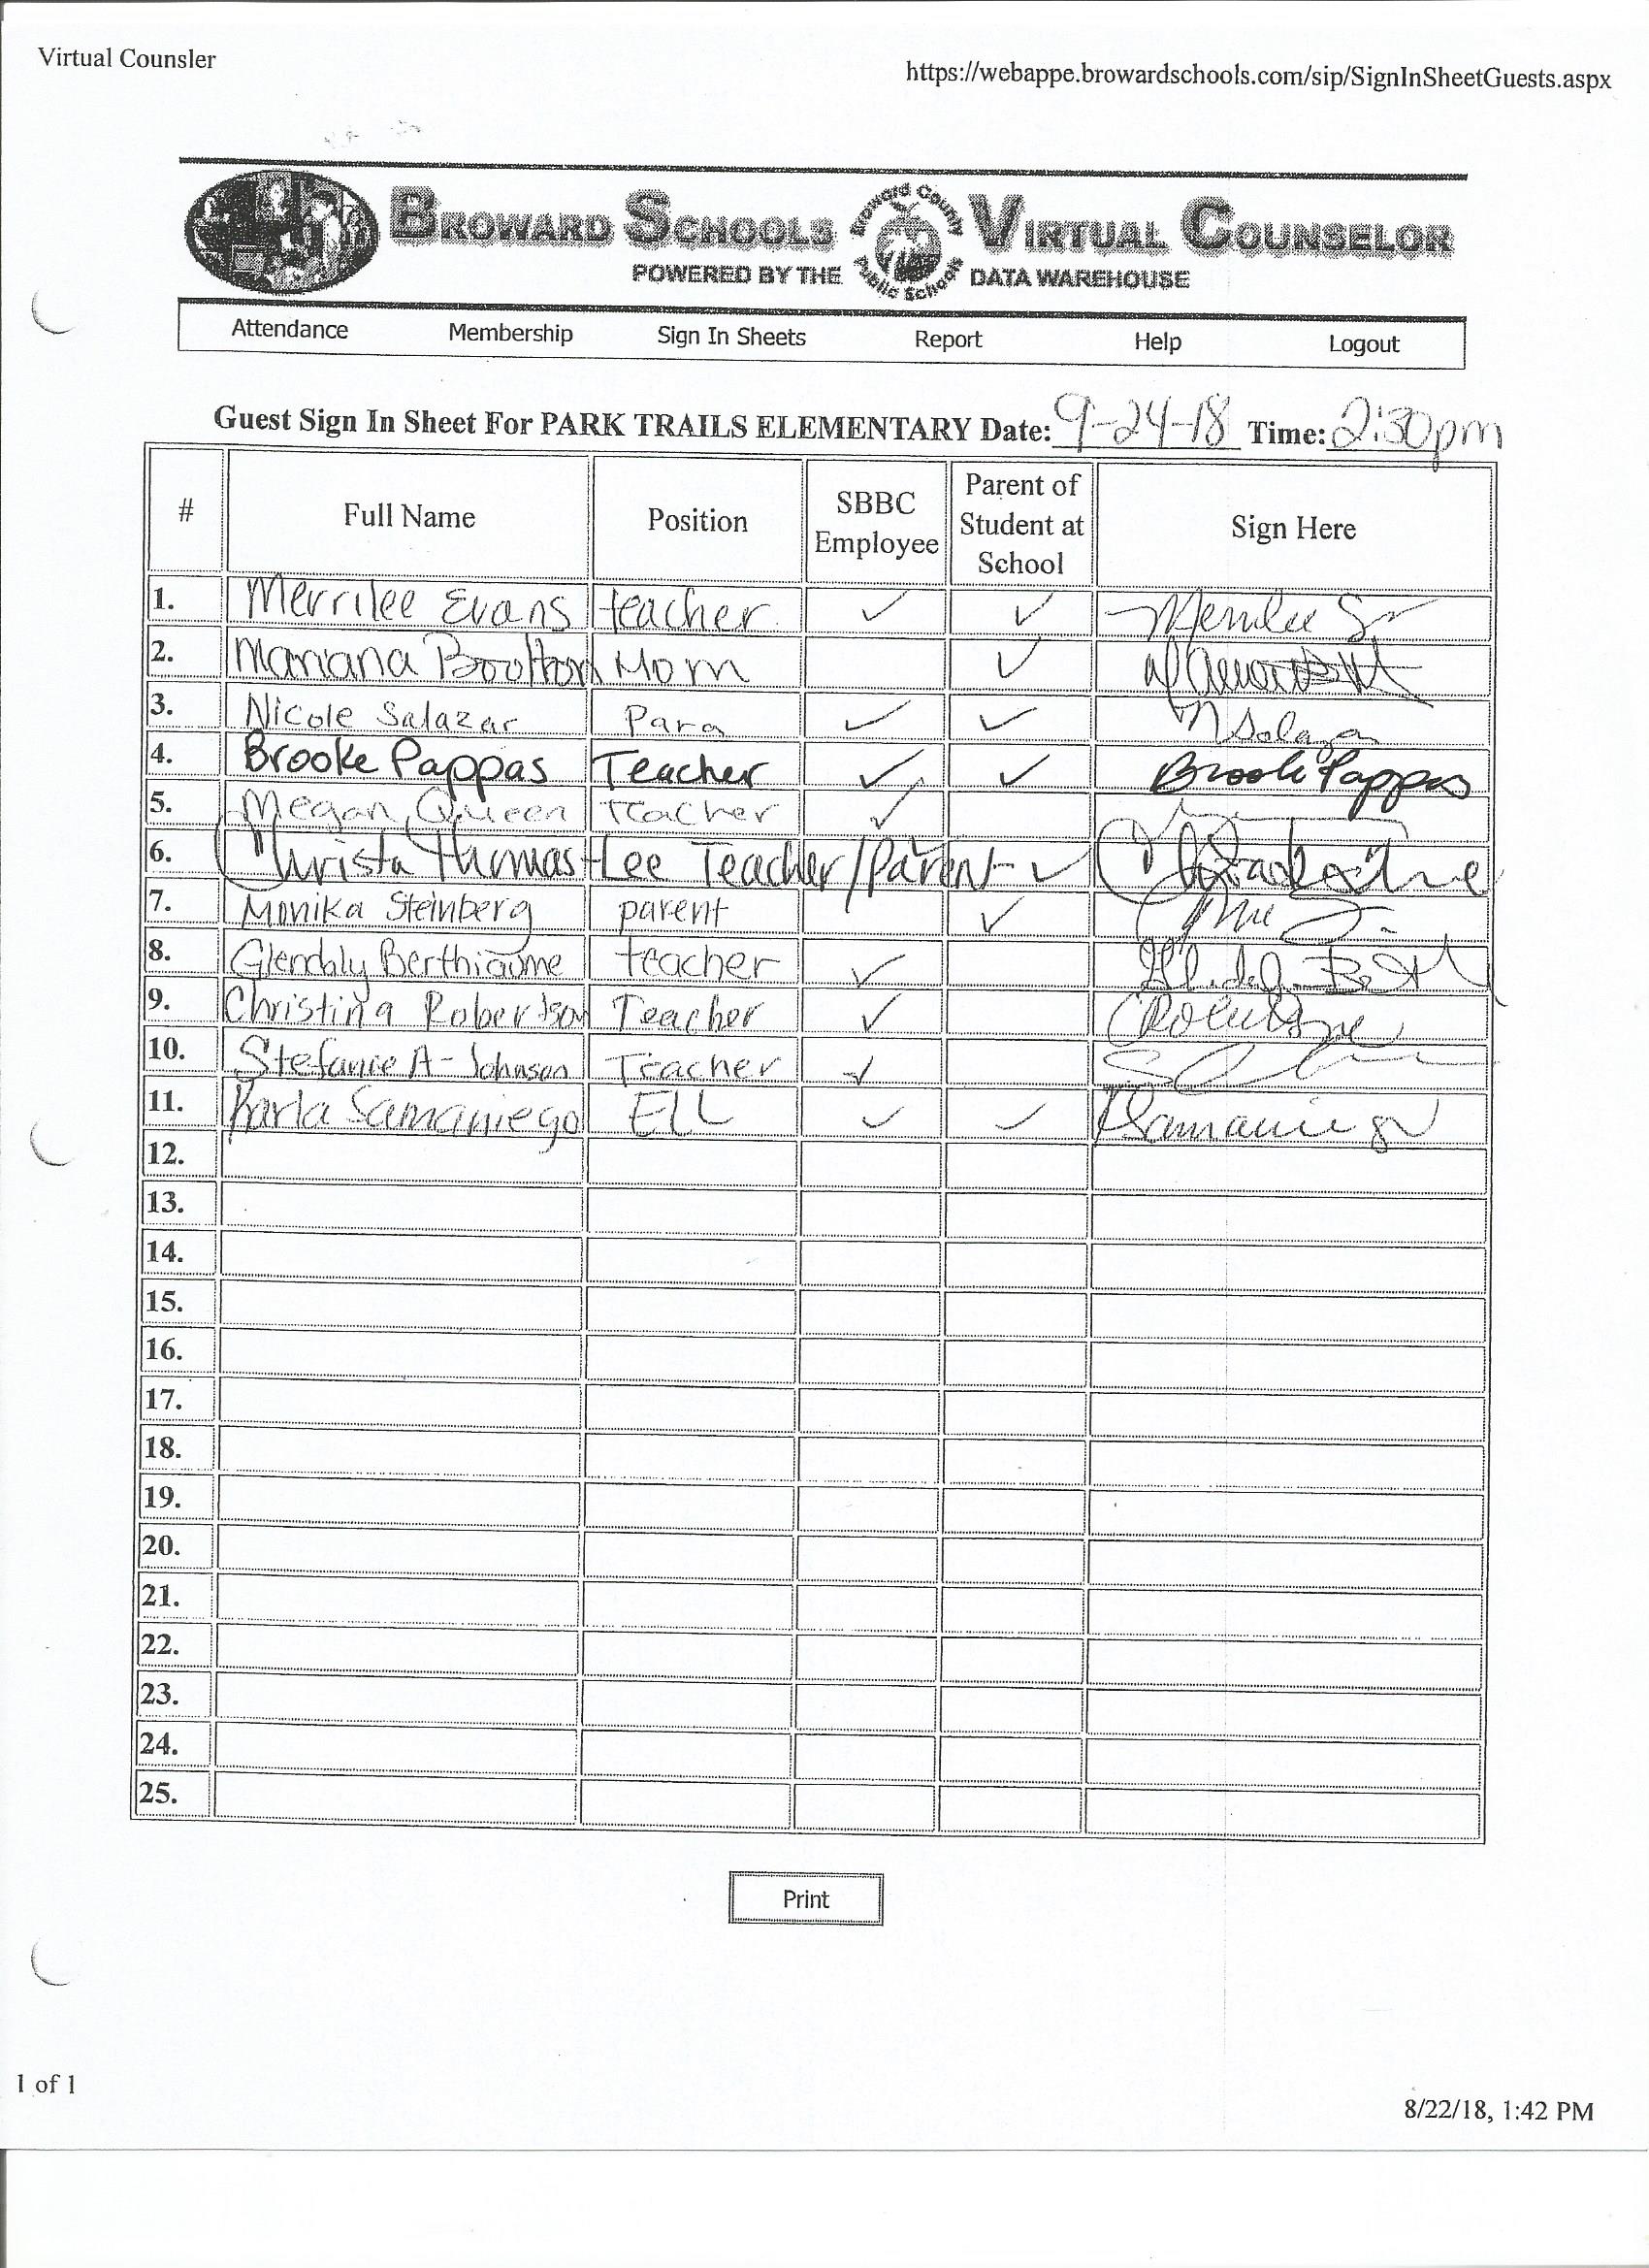 Virtual Counsler
https://webappe.browardschools.com/sip/SignInSheetGuests.aspx
BROWARD SCHOOLS Broward County Public Schools VIRTUAL COUNSELOR
POWERED BY THE DATA WAREHOUSE
Attendance Membership Sign In Sheets Report Help Logout
Guest Sign In Sheet For PARK TRAILS ELEMENTARY Date: 9-24-18 Time: 2:30pm
# Full Name Position SBBC Employee Parent of Student at School Sign Here
1. Merrilee Evans teacher ✓ ✓ Merrilee
2. Mariana Boulton Mom ✓
3. Nicole Salazar Para ✓ ✓ N Salazar
4. Brooke Pappas Teacher ✓ ✓ Brooke Pappas
5. Megan Queen teacher ✓
6. Christa Thomas-Lee Teacher/Parent ✓
7. Monika Steinberg parent ✓
8. Berthiaume teacher ✓
9. Christina Robertson Teacher ✓ CRobertson
10. Stefanie A-Johnson Teacher ✓
11. Karla Samaniego ELL ✓ ✓ KSamaniego
12.
13.
14.
15.
16.
17.
18.
19.
20.
21.
22.
23.
24.
25.
Print
1 of 1
8/22/18, 1:42 PM